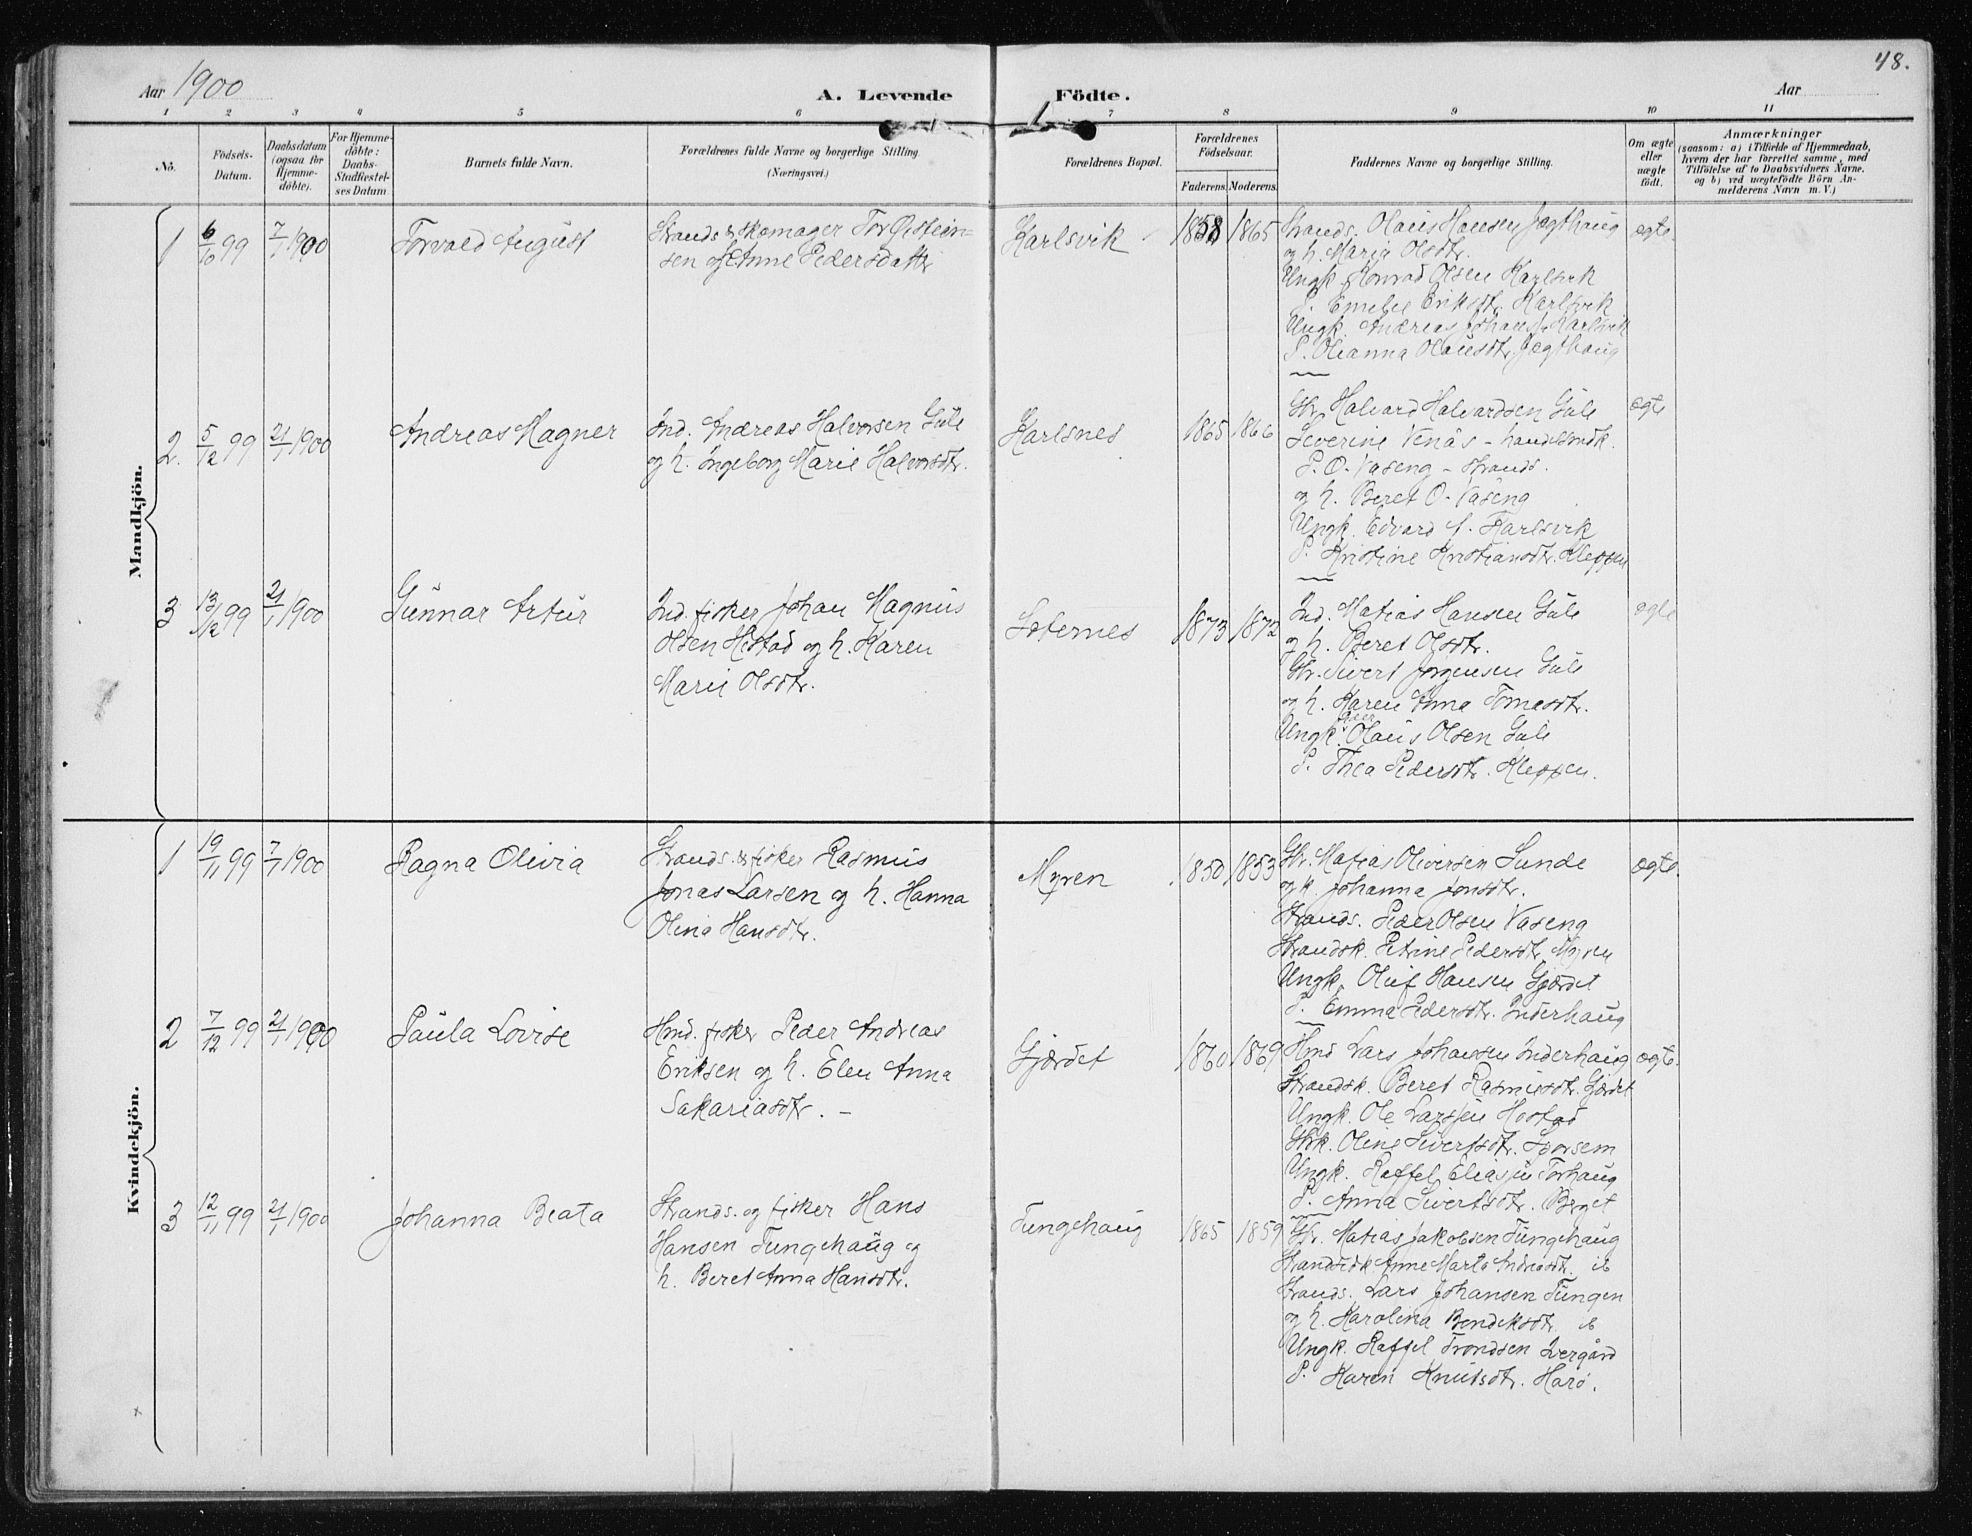 48.
Aar 1900
A. Levende Födte.
Aar
1 2 3 4 5 6 7 8 9 10 11
No.
Födsels-
Datum.
Daabsdatum
(ogsaa for
Hjemme-
döbte).
For Hjemme-
döbte:
Daabs-
Stadfæstel-
ses Datum.
Barnets fulde Navn.
Forældrenes fulde Navne og borgerlige Stilling.
(Næringsvei.)
Forældrenes Bopæl.
Forældrenes
Födselsaar.
Faderens. Moderens.
Faddernes Navne og borgerlige Stilling.
Om ægte
eller
uægte
födt.
Anmærkninger
(saasom: a) i Tilfælde af Hjemmedaab,
hvem der har forrettet samme, med
Tilföielse af to Daabsvidners Navne,
og b) ved uægtefödte Börn An-
melderens Navn m. V.)
Mandkjön.
1 6/10 99 7/1 1900 Torvald August
Strands. & skomager Tor Øistein-
sen og h. Anne Pedersdattr
Karlsvik 1858 1865
Strands. Olaus Hansen Jægthaug
og h. Maria Olsdtr.
Ungk. Konrad Olsen Karlsvik
P. Emelie Eriksdtr. Karlsvik
Ungk. Andreas Johans. Karlsvik
P. Olianna Olausdtr. Jægthaug
ægte.
2. 5/12 99 21/1 1900 Andreas Magner
Ind. Andreas Halvorsen Gule
og h. Ingeborg Marie Halvorsdtr.
Karlsnes 1865 1866
Gbr. Halvard Halvardsen Gule
Severine Venås - handelsmdk.
P. O. Vaseng - strands.
og h. Beret O. Vaseng
Ungk. Edvard A. Karlsvik
P. Kristine Kristiansdtr. Kleppen
ægte
3 13/12 99 21/1 1900 Gunnar Artur
Ind. fisker Johan Magnus
Olsen Hostad og h. Karen
Marie Olsdtr.
Seternes 1873 1872
Ind. Matias Hansen Gule
og h. Beret Olsdtr.
Gbr. Sivert Jørgensen Gule
og h. Karen Anna Tomasdtr.
Ungk. Olaus Olsen Gule
P. Thea Pedersdtr. Kleppen.
ægte
Kvindekjön.
1 19/11 99 7/1 1900 Ragna Olivia
Strands. & fisker Rasmus
Jonas Larsen og h. Hanna
Olina Hansdtr.
Myren 1850 1853
Gbr. Matias Oliversen Sunde
og h. Johanna Jonsdtr.
Strands. Peder Olsen Vaseng
Strandsk. Petrine Pedersdtr. Myren
Ungk. Oluf Hansen Gjærdet
P. Emma Pedersdtr. Inderhaug
ægte.
2 7/12 99 21/1 1900 Paula Lovise
Hmd. fisker Peder Andreas
Eriksen og h. Elen Anna
Sakariasdtr. -
Gjærdet 1860 1869
Hmd Lars Johansen Inderhaug
Strandsk. Beret Rasmusdtr. Gjærdet
Ungk. Ole Larssen Hostad
Gbk. Oline Sivertsdtr. Sorsem
Ungk. Raffel Eliassen Torhaug
P. Anna Sivertsdtr. Berget
ægte.
3 12/11 99 21/1 1900 Johanna Beata
Strands. og fisker Hans
Hansen Tungehaug og
h. Beret Anna Hansdtr.
Tungehaug 1865 1859
Gbr. Matias Jakobsen Tungehaug
Strandsdk. Anne Marta Andrasdtr. ib
Strands. Lars Johansen Tungen
og h. Karolina Bendiksdtr. ib
Ungk. Raffel Trondsen Ivergård
P. Karen Knutsdtr. Harø.